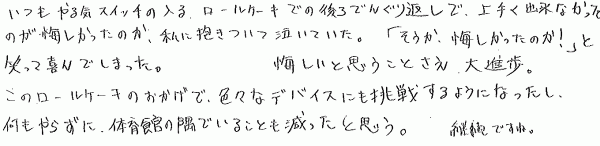 いつもやる気スイッチの入る、ロールケーキでの後ろでんぐり返しで、上手く出来なかった
のが悔しかったのか、私に抱きついて泣いていた。「そうか、悔しかったのか!」と
笑って喜んでしまった。 悔しいと思うことさえ、大進歩。
このロールケーキのおかげで、色々なデバイスにも挑戦するようになったし、
何もやらずに、体育館の隅でいることも減ったと思う。 継続ですね。